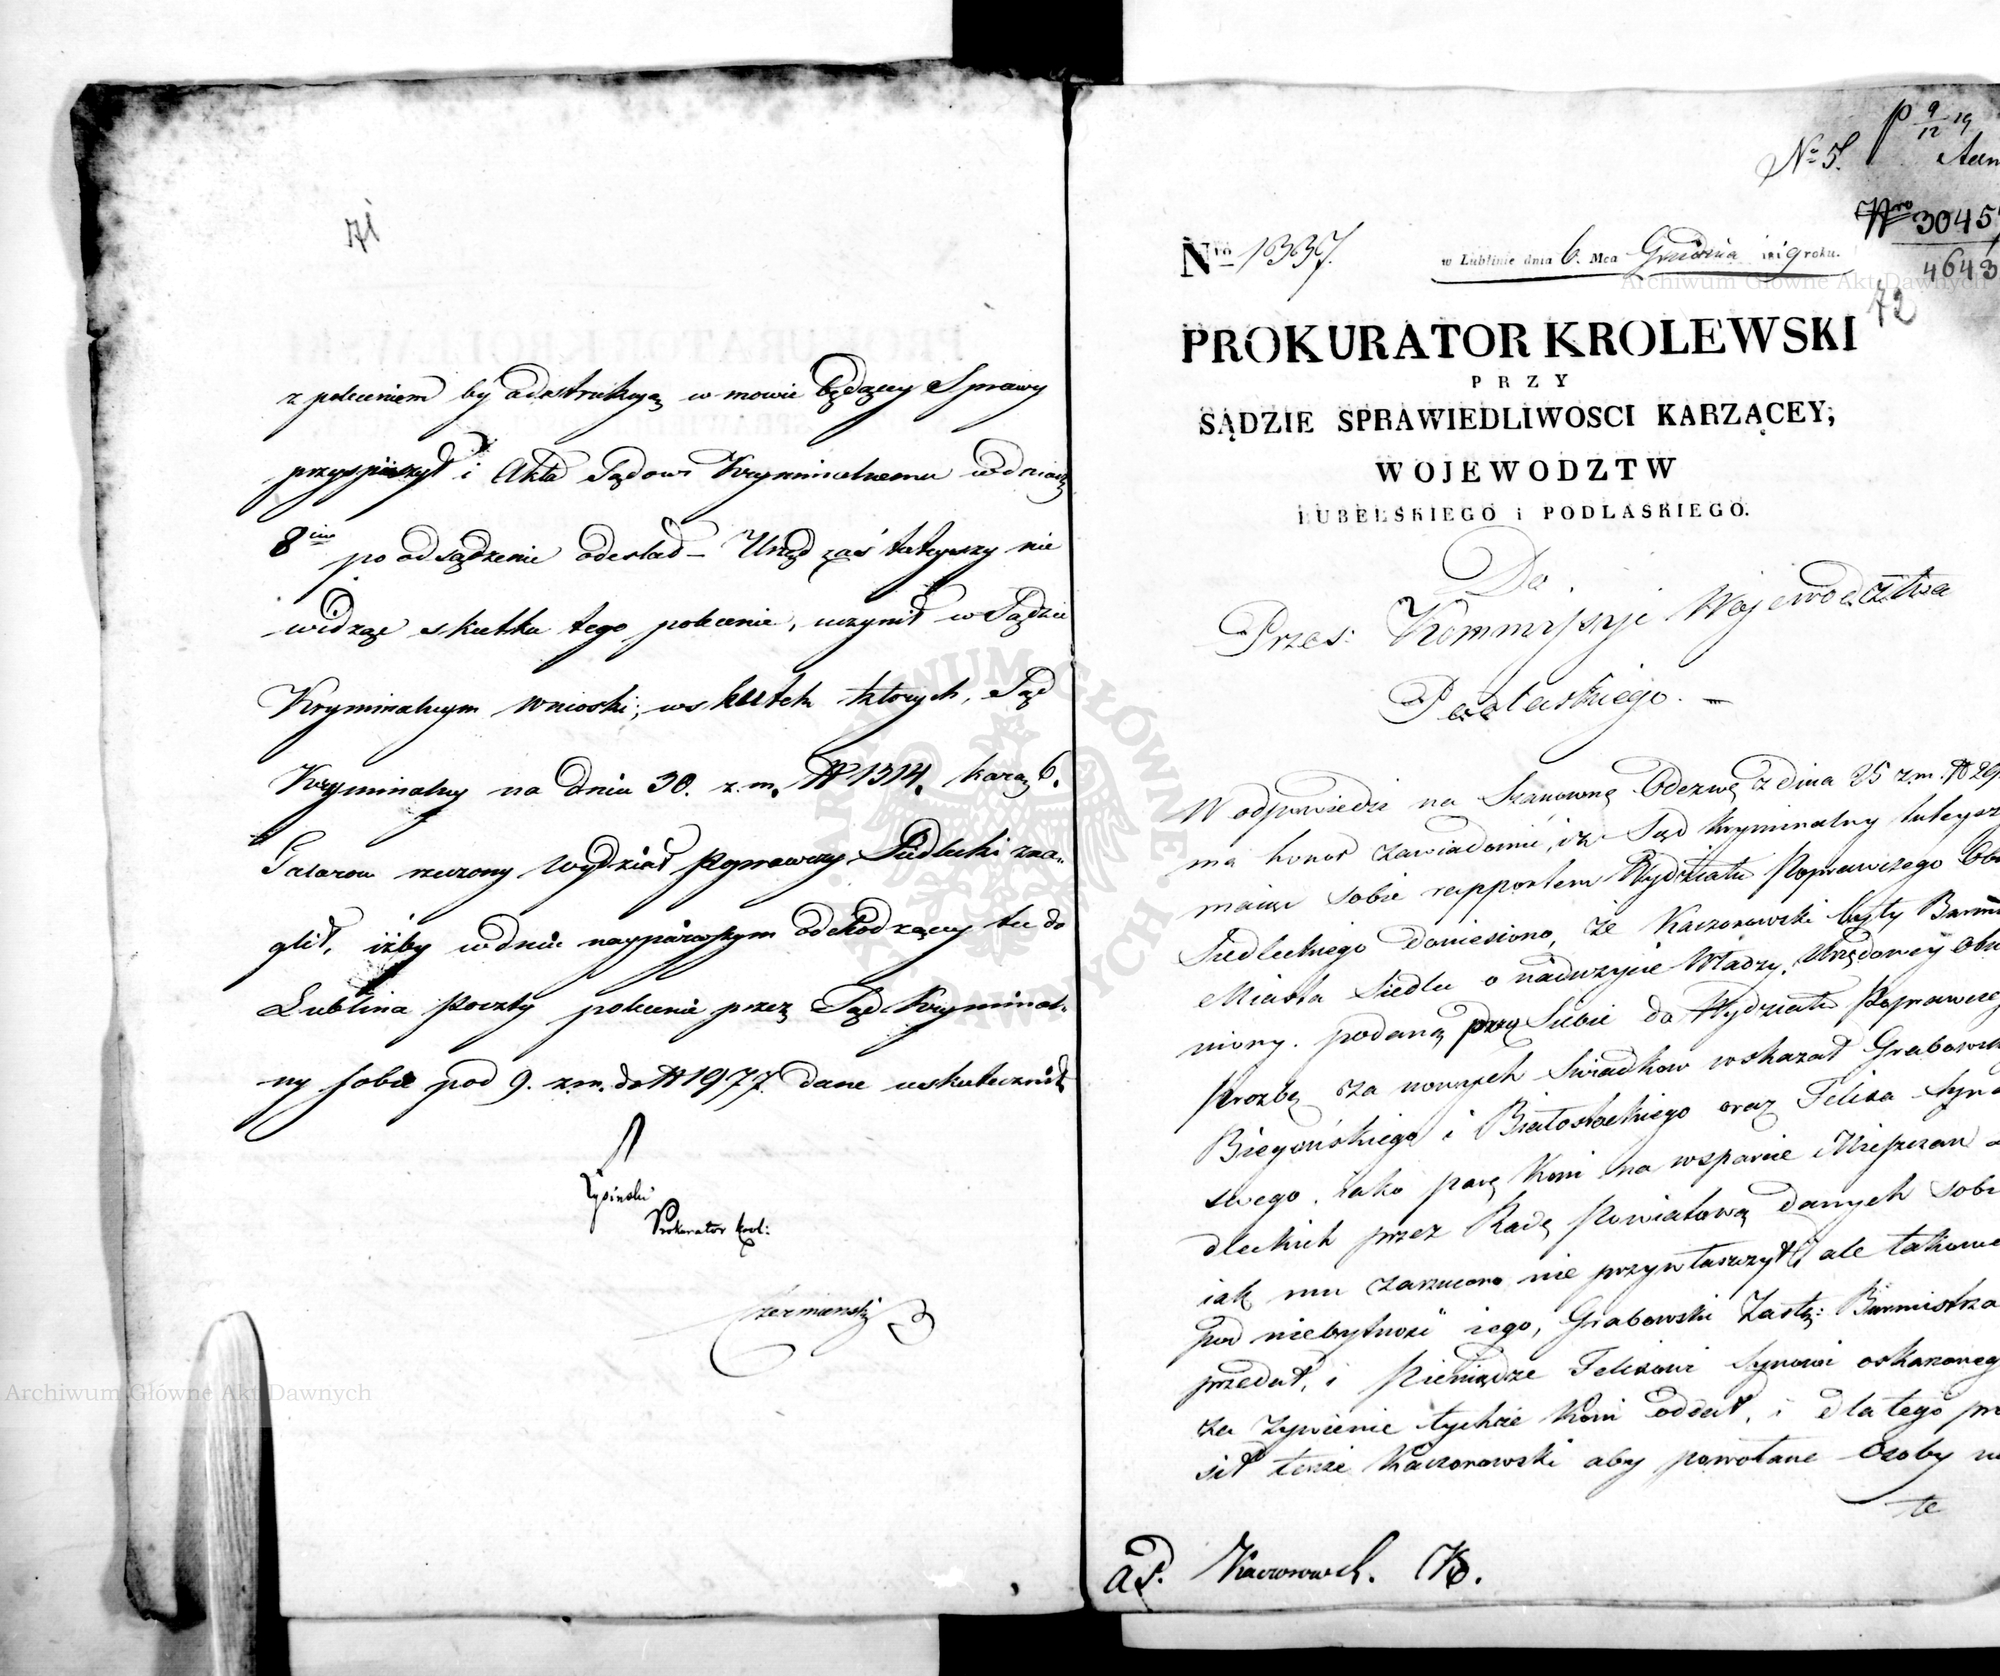 71
z poleceniem by adstrukcyą w mowie będącey Sprawy
przyspieszył i Akta Sądowi Kryminalnemu w dniach
8miu po odsądzenie odesłał – Urząd zaś tuteyszy nie
widząc skutku tego polecenia, uczynił w Sądzie
Kryminalnym wnioski; w skutek których, Sąd
Kryminalny na dniu 30. z. m. N 1314. karą 6.
Talarow rzeczony Wydział Poprawczy Siedlecki zna-
glił, iżby w dniu naypierwszym odchodzącey tu do
Lublina Poczty polecenie przez Sąd Kryminal-
ny sobie pod 9. z. m. do N 1977 dane uskutecznił
Prokurator Król:
Czermienski
p 9/12 19
No 5.
Nro 3045
4643
72
Nro 1337. w Lublinie dnia 6. Mca Grudnia 1819 roku.
PROKURATOR KROLEWSKI
PRZY
SĄDZIE SPRAWIEDLIWOSCI KARZĄCEY,
WOJEWODZTW
LUBELSKIEGO i PODLASKIEGO.
Do
Przes: Kommissyi Wojewodztwa
Podlaskiego. –
W odpowiedzi na Szanowną Odezwę z dnia 25 z. m. N 29
ma honor zawiadomić, iż Sąd Kryminalny tuteysz
maiąc sobie rapportem Wydziału Poprawczego Obw
Siedleckiego doniesiono, że Kaczorowski były Burmi
Miasta Siedlec o nadużycie Władzy Urzędowey obw
niony. podaną przez Siebie do Wydziału Poprawcze
Prozbą za nowych Swiadkow wskazał Grabowsk
Biegańskiego i Białostockiego oraz Felixa Syna
swego, iako parę Koni na wsparcie Mieszczan
dleckich przez Radę Powiatową danych sobi
iak mu zarzucono nie przywłaszczył, ale takowe
pod niebytność iego, Grabowski Zastę: Burmistrza
przedał, i Pieniądze Felixowi Synowi oskarzoneg
za żywienie tychże Koni oddał, i dla tego pro
sił tenże Kaczorowski aby powołane Osoby na
te
ad. Kaczorowsk.
Archiwum Główne Akt Dawnych
Archiwum Główne Akt Dawnych
ARCHIWUM GŁÓWNE AKT DAWNYCH